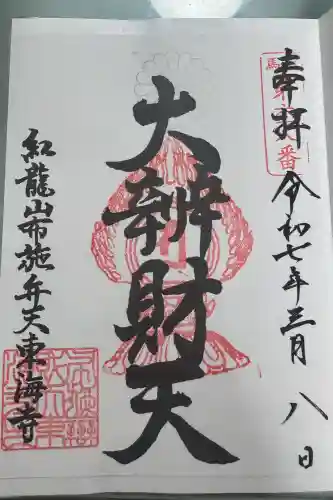 奉拝
令和七年三月八日
大辨財天
紅龍山布施弁天東海寺
番